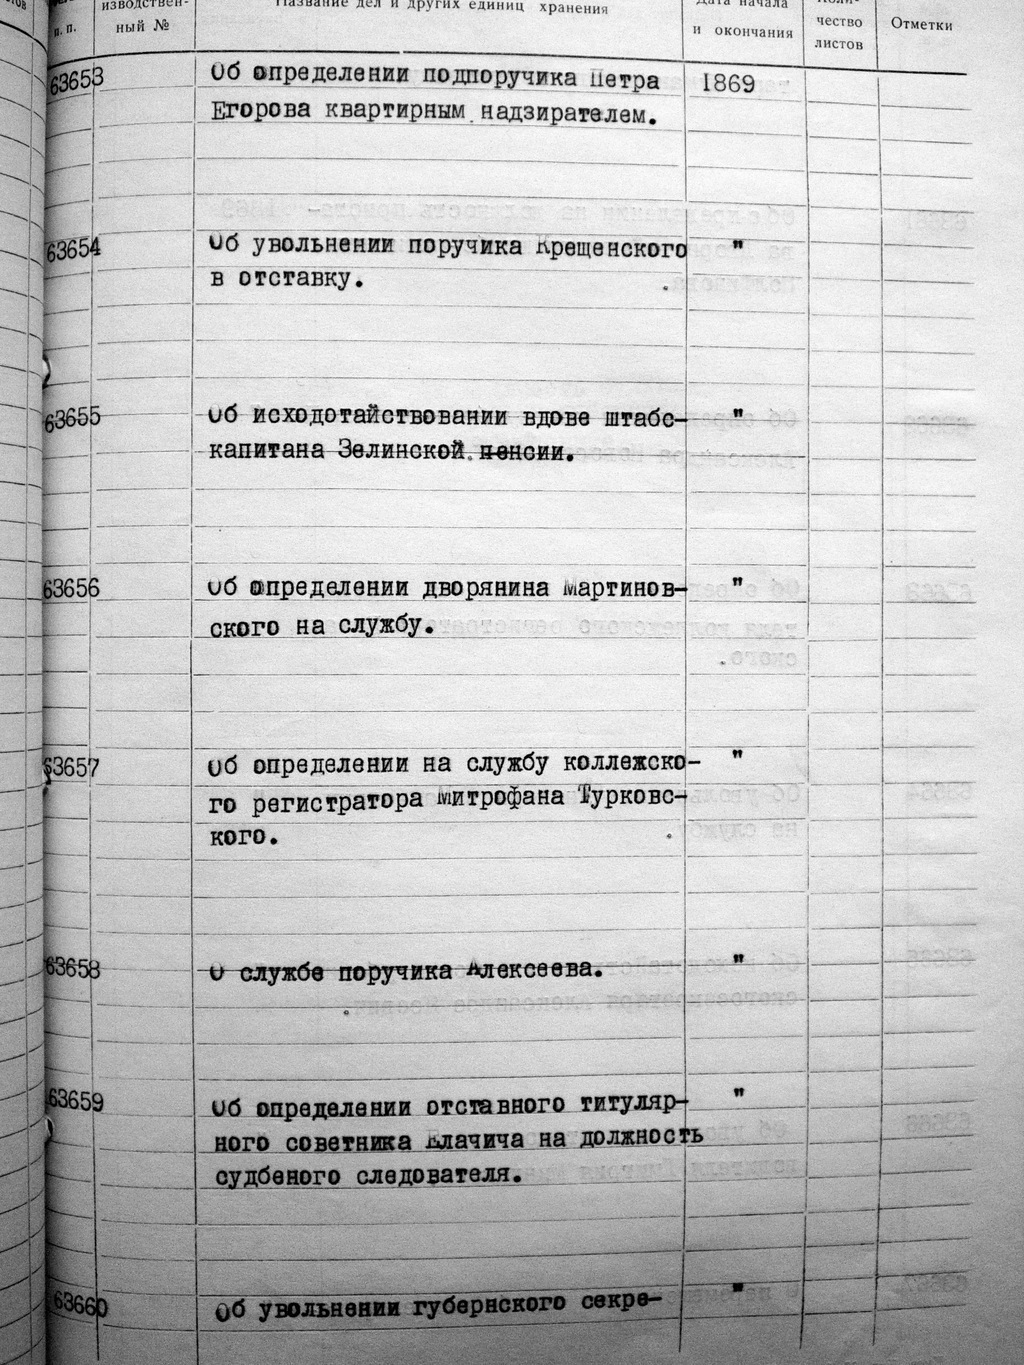 п. п. изводствен- ный № Название дел и других единиц хранения Дата начала и окончания чество листов Отметки
63653 Об определении подпоручика Петра 1869
Егорова квартирным надзирателем.
63654 Об увольнении поручика Крещенского "
в отставку.
63655 Об исходотайствовании вдове штабс- "
капитана Зелинской пенсии.
63656 Об определении дворянина Мартинов- "
ского на службу.
63657 Об определении на службу коллежско- "
го регистратора Митрофана Турковс-
кого.
63658 О службе поручика Алексеева. "
63659 Об определении отставного титуляр- "
ного советника Влачича на должность
судбеного следователя.
63660 Об увольнении губернского секре- "